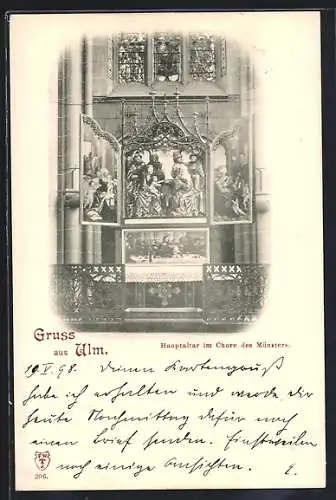 Gruss
aus Ulm.
Hauptaltar im Chore des Münsters.
19.V.98. Deinen Kartengruß
habe ich erhalten und werde dir
heute Nachmittag dafür noch
einen Brief senden. Einstweilen
noch einige Ansichten. E.
206.